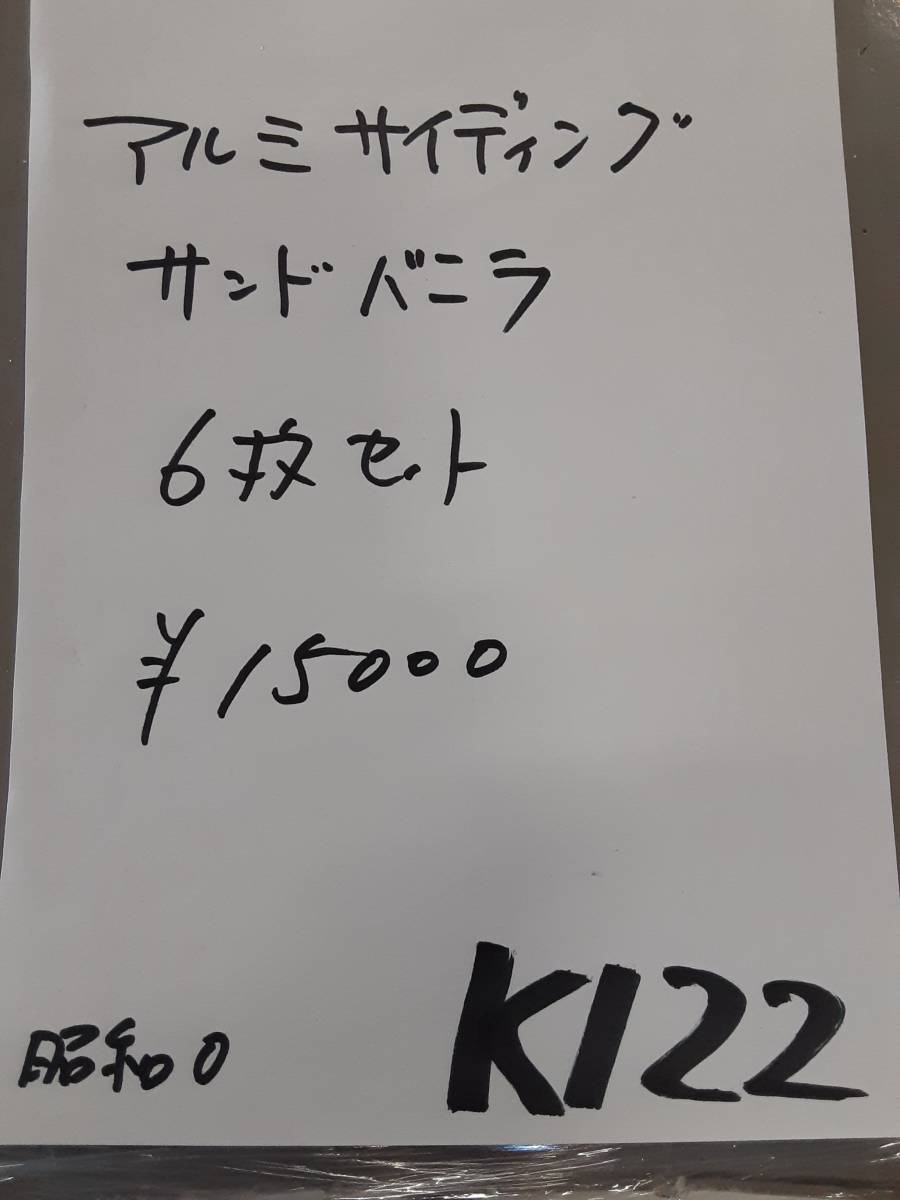 アルミサイディング
サンドバニラ
6枚セット
¥15000
昭和0
K122